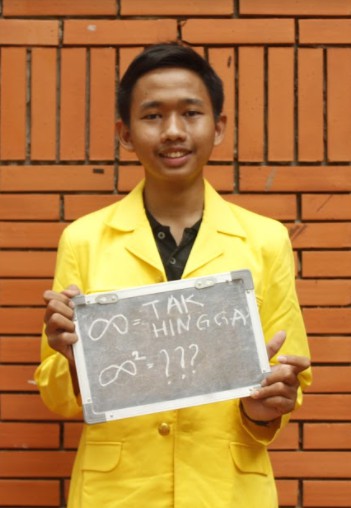 ∞ = TAK
HINGGA
∞² = ???